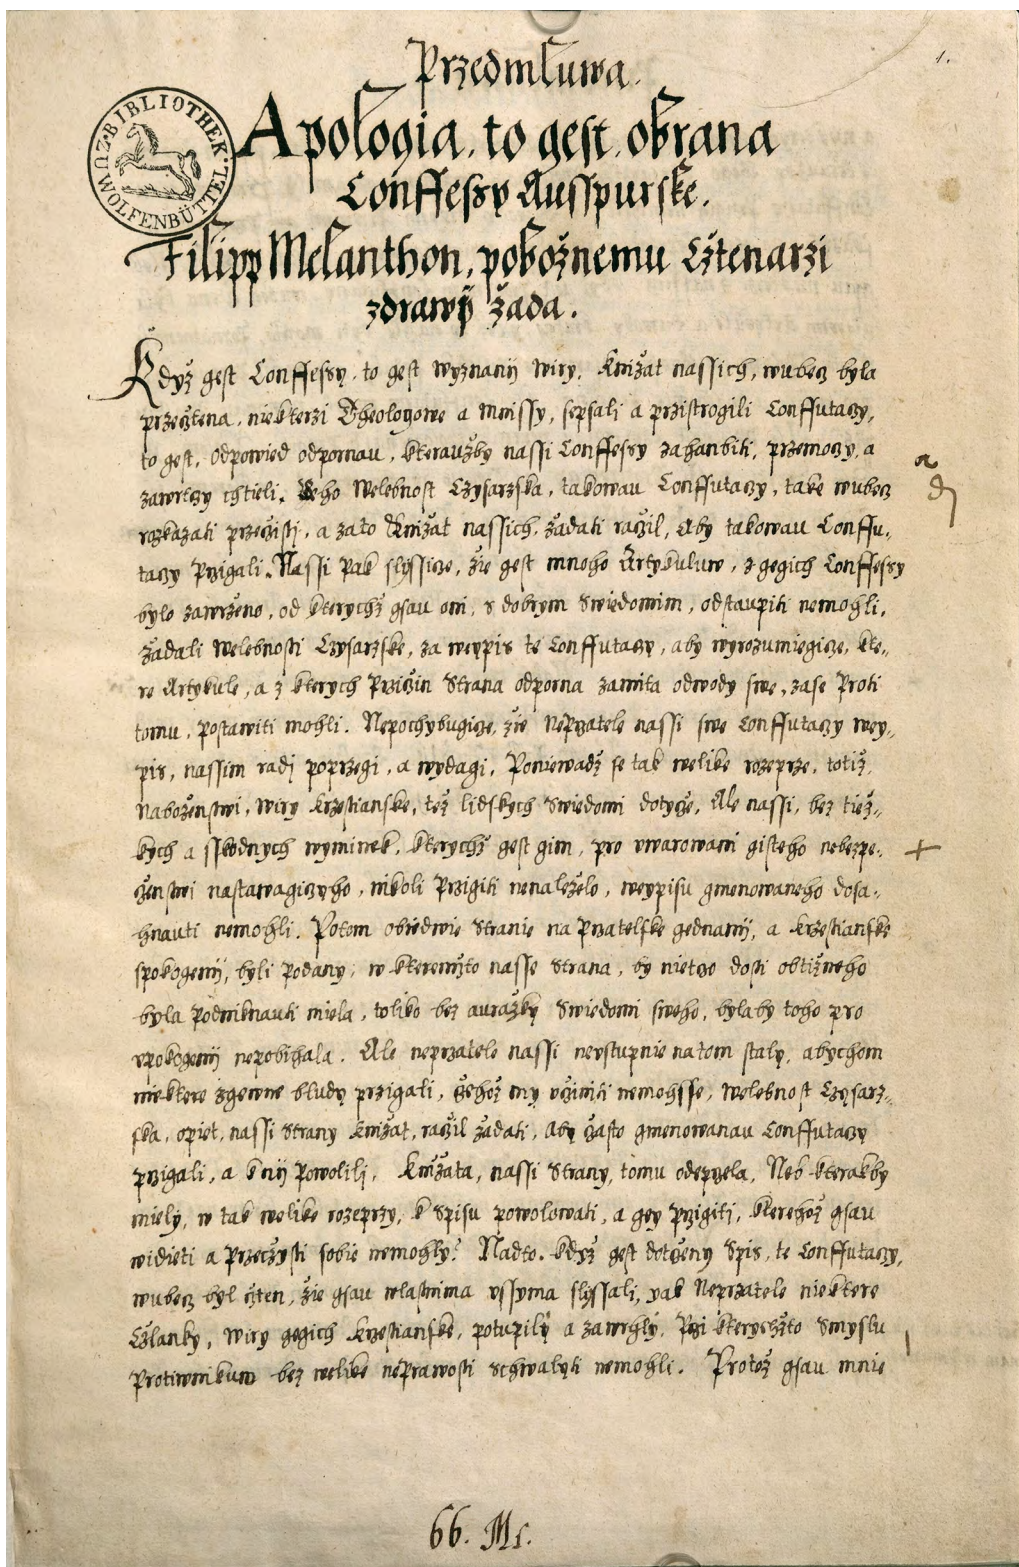 1.
Przedmluwa.
BIBLIOTHEK ZU WOLFENBÜTTEL
Apologia, to gest, obrana
Conffessy Ausspurske.
Filipp Melanthon, pobožnemu Cžtenarzi
zdrawij žada.
Když gest Conffessy, to gest wyznanij wiry, Knižat nassich, wubecz byla
przecžtena, niekterzi Theologowe a Mnissy, sepsali a przistrogili Conffutaczy,
to gest, odpowied odpornau, kteraužby nassi Conffessy zahanbiti, przemoczy, a
zawrczy chtieli. Geho Welebnost Czysarzska, takowau Conffutaczy, také wubecz
rozkazati przecžisti, a zato Knižat nassich, žadati racžil, Aby takowau Conffu„
taczy Przigali. Nassi Pak slyssicze, žie gest mnoho Artykuluw, z gegich Conffessy
bylo zawrženo, od kterychž gsau oni, s dobrym Swiedomim, odstaupiti nemohli,
žadali Welebnosti Czysarzske, za weypis te Conffutaczy, aby wyrozumiegicze, kte„
re Artykule, a z kterych Przicžin Strana odporna zamita odwody swe, zase Proti
tomu, postawiti mohli. Nepochybugicze, žie Neprzatele nassi swe Conffutaczy wey„
pis, nassim radj poprzegi, a wydagi, Poniewadž se tak welike rozeprze, totiž,
Naboženstwi, wiry krzestianske, tež lidskych Swiedomi dotycže, Ale nassi, bez tiež„
kych a sskodnych wyminek, kterychž gest gim, pro uwarowani gisteho nebezpe„
cženstwi nastawagiczyho, nikoli Przigiti nenaleželo, weypisu gmenowaneho dosa„
hnauti nemohli. Potom obiedwie Stranie na Przatelske gednanij, a krzestianske
spokogenij, byli podany, w kteremžto nasse Strana, by nietczo dosti obtižneho
byla podniknauti miela, toliko bez auražky Swiedomi sweho, bylaby toho pro
upokogenij nepobihala. Ale neprzatele nassi neustupnie natom staly, abychom
niektere zgewne bludy przigali, Gehož my ucžiniti nemohsse, Welebnost Czysarz„
ska, opiet, nassi Strany Knižat, racžil žadati, Aby cžasto gmenowanau Conffutaczy
przigali, a knij Powolili, Knižata, nassi Strany, tomu odeprzela, Neb kterakby
miely, w tak welike rozeprzy, k Spisu powolowati, a gey Przigiti, kterehož gsau
widieti a Przecžysti sobie nemohly? Nadto. když gest dotcženy Spis, te Conffutaczy,
wubecz byl cžten, žie gsau wlastnima ussyma slyssali, yak Neprzatele niektere
Cžlanky, wiry gegich krzestianské, potupily a zawrhly, Przi kterychžto Smyslu
Protiwnikuw bez welike neprawosti Schwalyti nemohli. Protož gsau mnie
66. Ms.